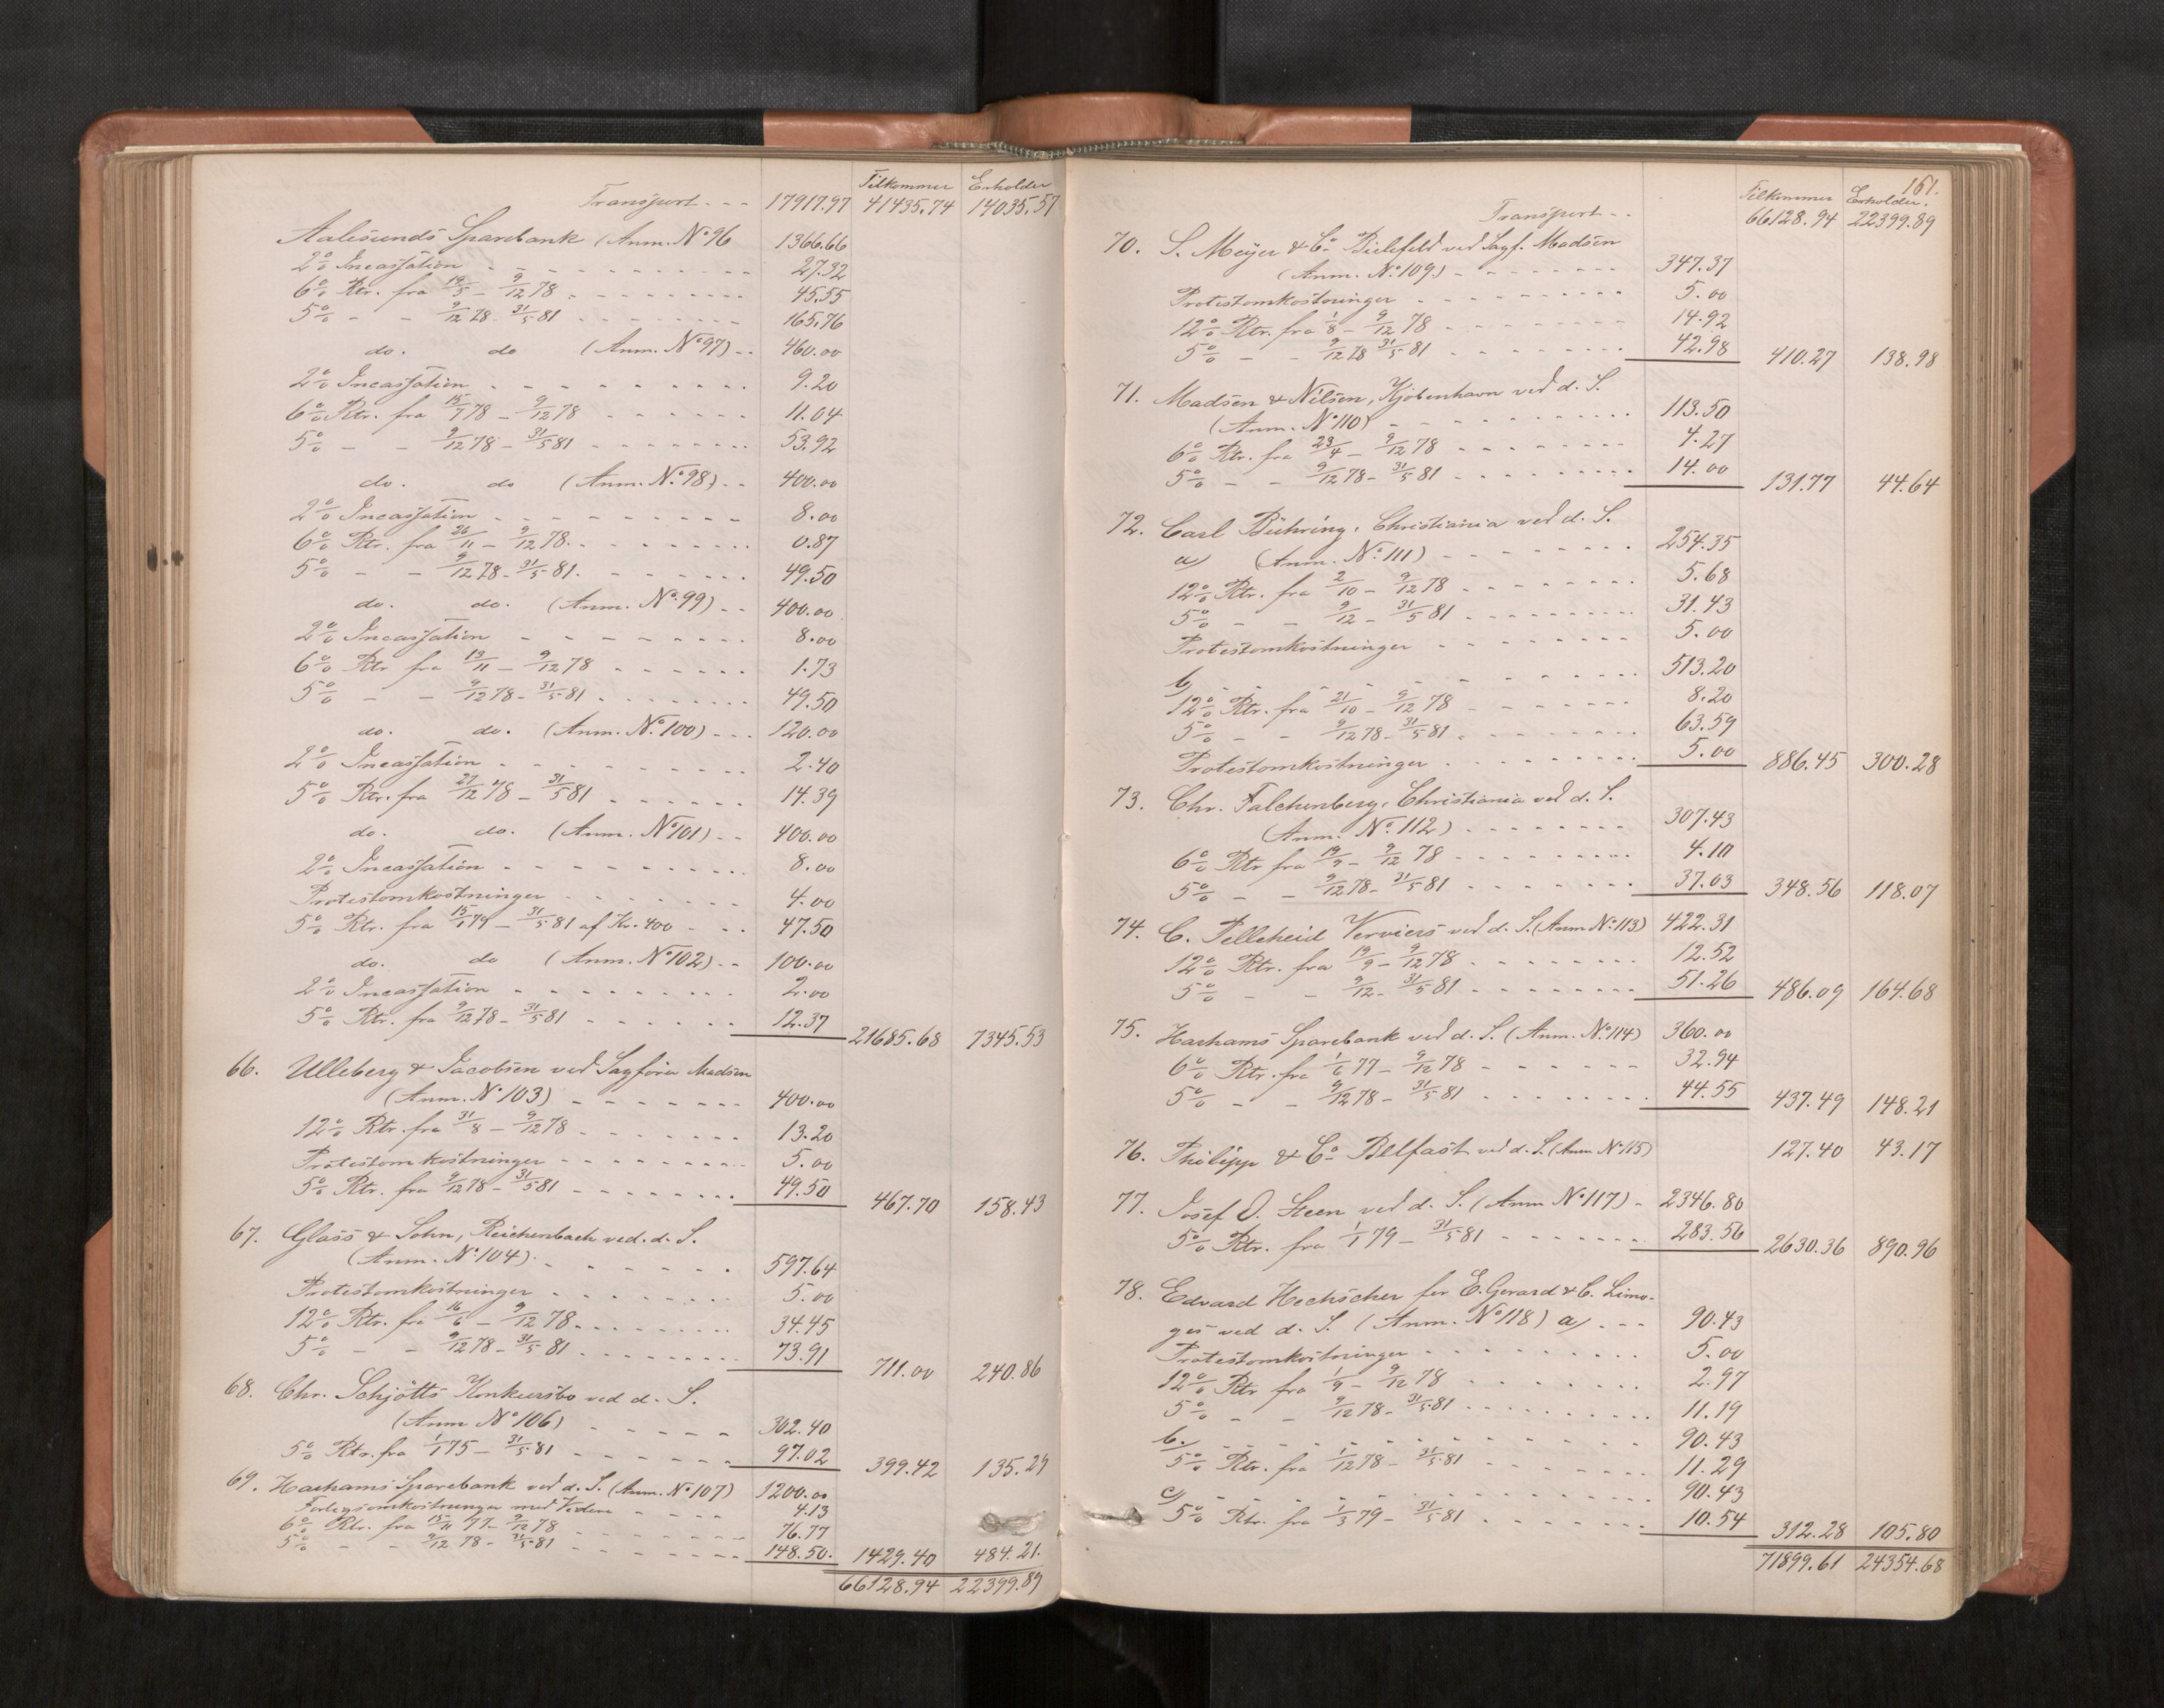 Tilkommer Erholder
Transport - - - 17917.97 41435.74 14035.57
Aalesunds Sparebank (Anm. No 96 1366.66
2% Incassation - - - 27.32
6% Rtr. fra 19/5 - 9/12 78 - - - 45.55
5% - - 9/12 78 - 31/5 81 - - - 165.76
do. do (Anm. No 97) - - 460.00
2% Incassation - - - 9.20
6% Rtr. fra 15/7 78 - 9/12 78 - - - 11.04
5% - - 9/12 78 - 31/5 81 - - - 53.92
do. do (Anm. No 98) - - 400.00
2% Incassation - - - 8.00
6% Rtr. fra 26/11 - 9/12 78 - - - 0.87
5% - - 9/12 78 - 31/5 81. - - - 49.50
do. do. (Anm. No 99) - - 400.00
2% Incassation - - - 8.00
6% Rtr fra 13/11 - 9/12 78 - - - 1.73
5% - - 9/12 78 - 31/5 81 - - - 49.50
do. do. (Anm. No 100) - - - 120.00
2% Incassation - - - 2.40
5% Rtr. fra 27/12 78 - 31/5 81 - - - 14.39
do. do. (Anm. No 101) - - 400.00
2% Incassation - - - 8.00
Protestomkostninger - - - 4.00
5% Rtr. fra 15/1 79 - 31/5 81 af Kr. 400 - - - 47.50
do. do (Anm. No 102) - - 100.00
2% Incassation - - - 2.00
5% Rtr. fra 9/12 78 - 31/5 81 - - - 12.37 21685.68 7345.53
66. Ulleberg & Jacobsen ved Sagfører Madsen
(Anm. No 103) - - - 400.00
12% Rtr. fra 31/8 - 9/12 78 - - - 13.20
Protestomkostninger - - - 5.00
5% Rtr. fra 9/12 78 - 31/5 81 - - - 49.50 467.70 158.43
67. Glass & Sohn, Reichenbach ved. d. S.
(Anm. No 104). - - - 597.64
Protestomkostninger - - - 5.00
12% Rtr. fra 16/6 - 9/12 78 - - - 34.45
5% - - 9/12 78 - 31/5 81 - - - 73.91 711.00 240.86
68. Chr. Schjötts Konkursbo ved d. S.
(Anm No 106) - - - 302.40
5% Rtr. fra 1/1 75 - 31/5 81 - - - 97.02 399.42 135.29
69. Harhams Sparebank ved d. S. (Anm. No 107) 1200.00
Forligsomkostninger med - - - 4.13
6% Rtr. fra 15/11 77 - 9/12 78 - - - 76.77
5% - - 9/12 78 - 31/5 81 - - - 148.50. 1429.40 484.21.
66128.94 22399.89
161.
Tilkommer Erholder.
Transport - - 66128.94 22399.89
70. S. Meyer & Co Bielefeld ved Sagf. Madsen
(Anm. No 109) - - - 347.37
Protestomkostninger - - - 5.00
12% Rtr. fra 1/8 - 9/12 78 - - - 14.92
5% - - 9/12 78 31/5 81 - - - 42.98 410.27 138.98
71. Madsen & Nilsen, Kjøbenhavn ved d. S.
(Anm. No 110) - - - 113.50
6% Rtr. fra 23/4 - 9/12 78 - - - 4.27
5% - - 9/12 78 - 31/5 81 - - - 14.00 131.77 44.64
72. Carl Bühring, Christiania ved d. S.
a) (Anm. No 111) - - - 254.35
12% Rtr. fra 2/10 - 9/12 78 - - - 5.68
5% - - 9/12 - 31/5 81 - - - 31.43
Protestomkostninger - - - 5.00
b) - - - 513.20
12% Rtr. fra 21/10 - 9/12 78 - - - 8.20
5% - - 9/12 78 - 31/5 81 - - - 63.59
Protestomkostninger - - - 5.00 886.45 300.28
73. Chr. Falchenberg, Christiania ved d. S.
(Anm. No 112) - - - 307.43
6% Rtr fra 19/9 - 9/12 78 - - - 4.10
5% - - 9/12 78 - 31/5 81 - - - 37.03 348.56 118.07
74. C. Pelleheid Verviers ved d. S. (Anm No 113) 422.31
12% Rtr. fra 19/9 - 9/12 78 - - - 12.52
5% - - 9/12 - 31/5 81 - - - 51.26 486.09 164.68
75. Harhams Sparebank ved d. S. (Anm. No 114) 360.00
6% Rtr. fra 1/6 77 - 9/12 78 - - - 32.94
5% - - 9/12 78 - 31/5 81 - - - 44.55 437.49 148.21
76. Philipp & Co Belfast ved d. S. (Anm No 115) 127.40 43.17
77. Josef O. Steen ved d. S. (Anm No 117) - 2346.80
5% Rtr. fra 1/1 79 - 31/5 81 - - - 283.56 2630.36 890.96
78. Edvard Heckscher for E. Gerard & C. Limo-
ges ved d. S. (Anm. No 118) a) - - - 90.43
Protestomkostninger - - - 5.00
12% Rtr fra 1/9 - 9/12 78 - - - 2.97
5% - - 9/12 78 - 31/5 81 - - - 11.19
b. - - - 90.43
5% Rtr. fra 1/12 78 - 31/5 81 - - - 11.29
c) - - - 90.43
5% Rtr. fra 1/3 79 - 31/5 81 - - - 10.54 312.28 105.80
71899.61 24354.68